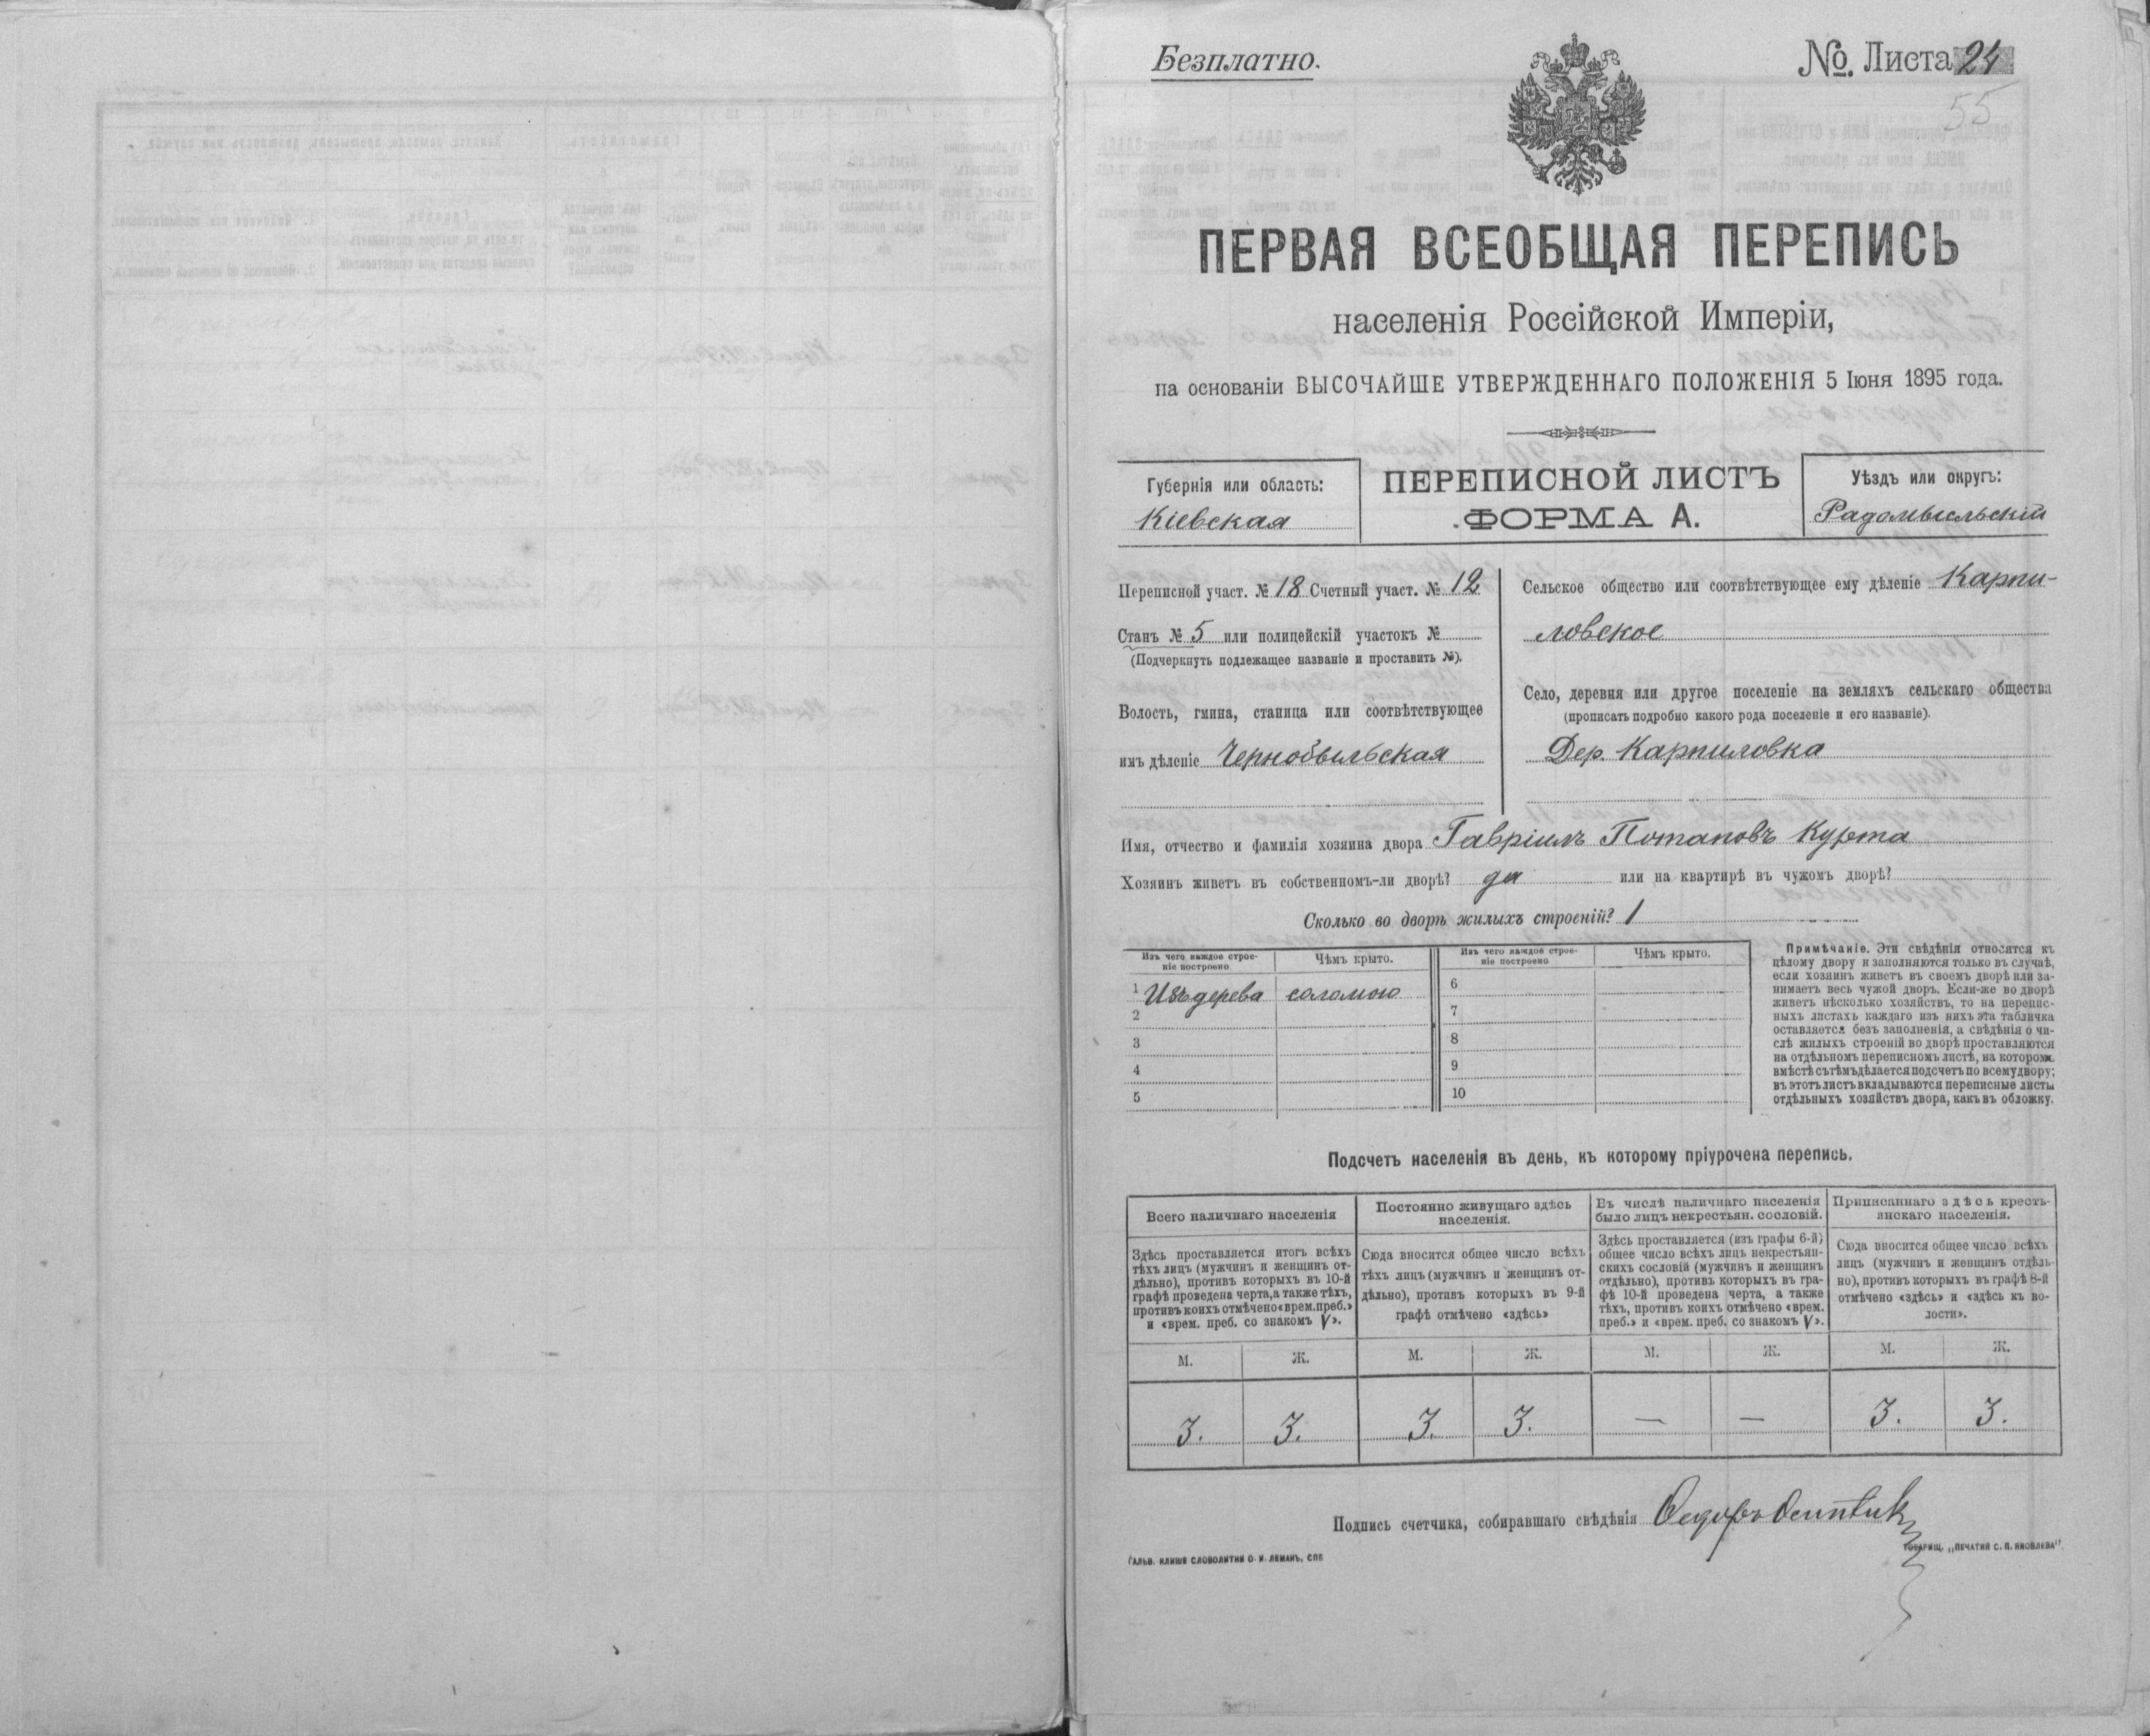 Безплатно.
№. Листа 24
55
ПЕРВАЯ ВСЕОБЩАЯ ПЕРЕПИСЬ
населенія Россійской Имперіи,
на основаніи ВЫСОЧАЙШЕ УТВЕРЖДЕННАГО ПОЛОЖЕНІЯ 5 Іюня 1895 года.
Губернія или область:
Кіевская
ПЕРЕПИСНОЙ ЛИСТЪ
ФОРМА А.
Уѣздъ или округъ:
Радомысльскій
Переписной участ. № 18 Счетный участ. № 12
Станъ № 5 или полицейскій участокъ №
(Подчеркнуть подлежащее названіе и проставить №).
Волость, гмина, станица или соотвѣтствующее
имъ дѣленіе Чернобыльская
Сельское общество или соотвѣтствующее ему дѣленіе Карпи-
ловское
Село, деревня или другое поселеніе на земляхъ сельскаго общества
(прописать подробно какого рода поселеніе и его названіе).
Дер. Карпиловка
Имя, отчество и фамилія хозяина двора Гавріилъ Потаповъ Курта
Хозяинъ живетъ въ собственномъ-ли дворѣ? да или на квартирѣ въ чужомъ дворѣ?
Сколько во дворѣ жилыхъ строеній? 1
Изъ чего каждое строе-
ніе построено
Чѣмъ крыто.
Изъ чего каждое строе-
ніе построено
Чѣмъ крыто.
1 Изъ дерева соломою
2
3
4
5
6
7
8
9
10
Примѣчаніе. Эти свѣдѣнія относятся къ
цѣлому двору и заполняются только въ случаѣ,
если хозяинъ живетъ въ своемъ дворѣ или за-
нимаетъ весь чужой дворъ. Если-же во дворѣ
живетъ нѣсколько хозяйствъ, то на перепис-
ныхъ листахъ каждаго изъ нихъ эта табличка
оставляется безъ заполненія, а свѣдѣнія о чи-
слѣ жилыхъ строеній во дворѣ проставляются
на отдѣльномъ переписномъ листѣ, на которомъ
вмѣстѣ съ тѣмъ дѣлается подсчетъ по всему двору;
въ этотъ листъ вкладываются переписные листы
отдѣльныхъ хозяйствъ двора, какъ въ обложку.
Подсчетъ населенія въ день, къ которому пріурочена перепись.
Всего наличнаго населенія
Здѣсь проставляется итогъ всѣхъ
тѣхъ лицъ (мужчинъ и женщинъ от-
дѣльно), противъ которыхъ въ 10-й
графѣ проведена черта, а также тѣхъ,
противъ коихъ отмѣчено «врем. преб.»
и «врем. преб. со знакомъ V».
Постоянно живущаго здѣсь
населенія.
Сюда вносится общее число всѣхъ
тѣхъ лицъ (мужчинъ и женщинъ от-
дѣльно), противъ которыхъ въ 9-й
графѣ отмѣчено «здѣсь»
Въ числѣ наличнаго населенія
было лицъ некрестьян. сословій.
Здѣсь проставляется (изъ графы 6-й)
общее число всѣхъ лицъ некрестьян-
скихъ сословій (мужчинъ и женщинъ
отдѣльно), противъ которыхъ въ гра-
фѣ 10-й проведена черта, а также
тѣхъ, противъ коихъ отмѣчено «врем.
преб.» и «врем. преб. со знакомъ V».
Приписаннаго здѣсь кресть-
янскаго населенія.
Сюда вносится общее число всѣхъ
лицъ (мужчинъ и женщинъ отдѣль-
но), противъ которыхъ въ графѣ 8-й
отмѣчено «здѣсь» и «здѣсь къ во-
лости».
М. Ж. М. Ж. М. Ж. М. Ж.
3. 3. 3. 3. — — 3. 3.
Подпись счетчика, собиравшаго свѣдѣнія
ГАЛЬВ. КЛИШЕ СЛОВОЛИТНИ О. И. ЛЕМАНЪ, СПБ
ТОВАРИЩ. „ПЕЧАТНЯ С. П. ЯКОВЛЕВА"